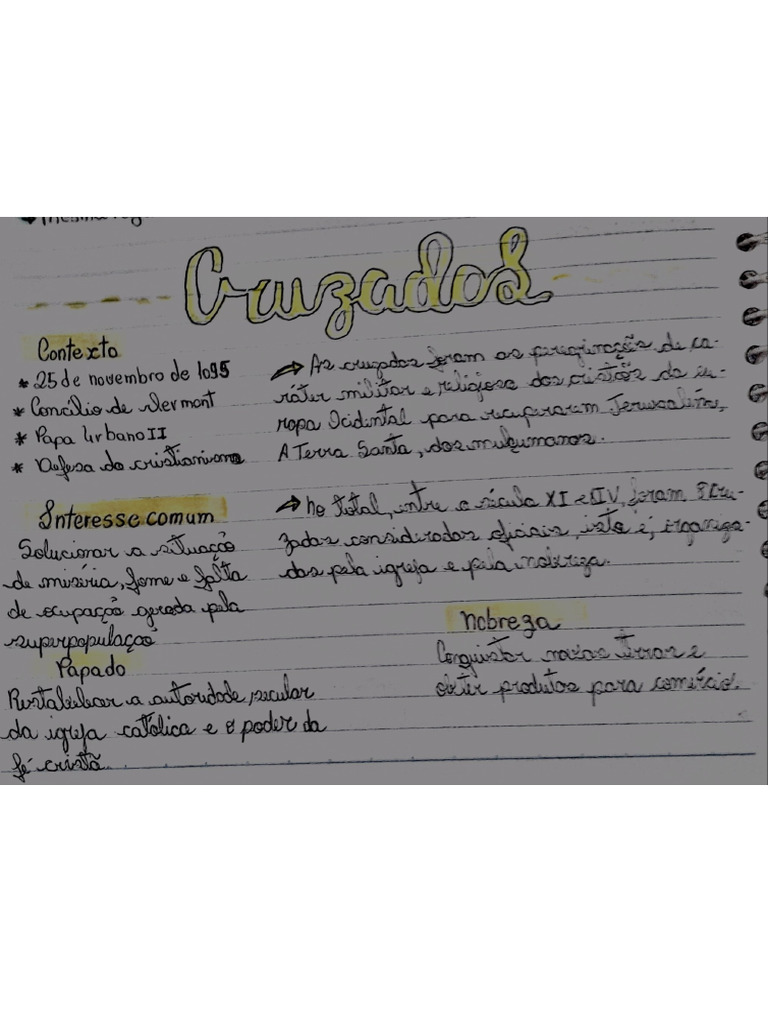 Cruzados
Contexto
* 25 de novembro de 1095
* Concílio de Clermont
* Papa Urbano II
* Defesa do cristianismo
→ As cruzadas foram as peregrinações de ca-
ráter militar e religiosa dos cristãos da eu-
ropa Ocidental para recuperarem Jerusalém,
A Terra Santa, dos mulçumanos.
Interesse comum
Solucionar a situação
de miséria, fome e falta
de ocupação gerada pela
superpopulação
→ No total, entre o século XI e XIV, foram 9 Cru-
zadas consideradas oficiais, isto é, organiza-
das pela igreja e pela nobreza.
Papado
Restabelecer a autoridade, secular
da igreja católica e o poder da
fé cristã
Nobreza
Conquistar novas terras e
obter produtos para comércio.